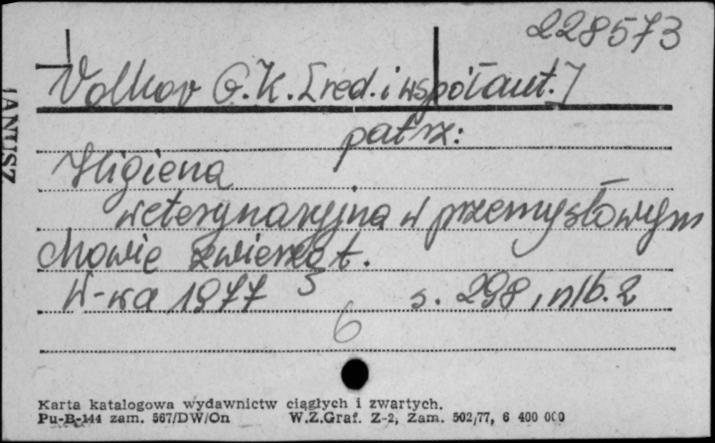 228573
Volkov G.K. [red. i współaut.]
patrz:
Higiena
weterynaryjna w przemysłowym
chowie zwierząt.
W-wa 1977 s. 298, nlb. 2
6
JANUSZ
Karta katalogowa wydawnictw ciągłych i zwartych.
Pu-B-144 zam. 567/DW/On W.Z.Graf. Z-2, Zam. 502/77, 6 400 000